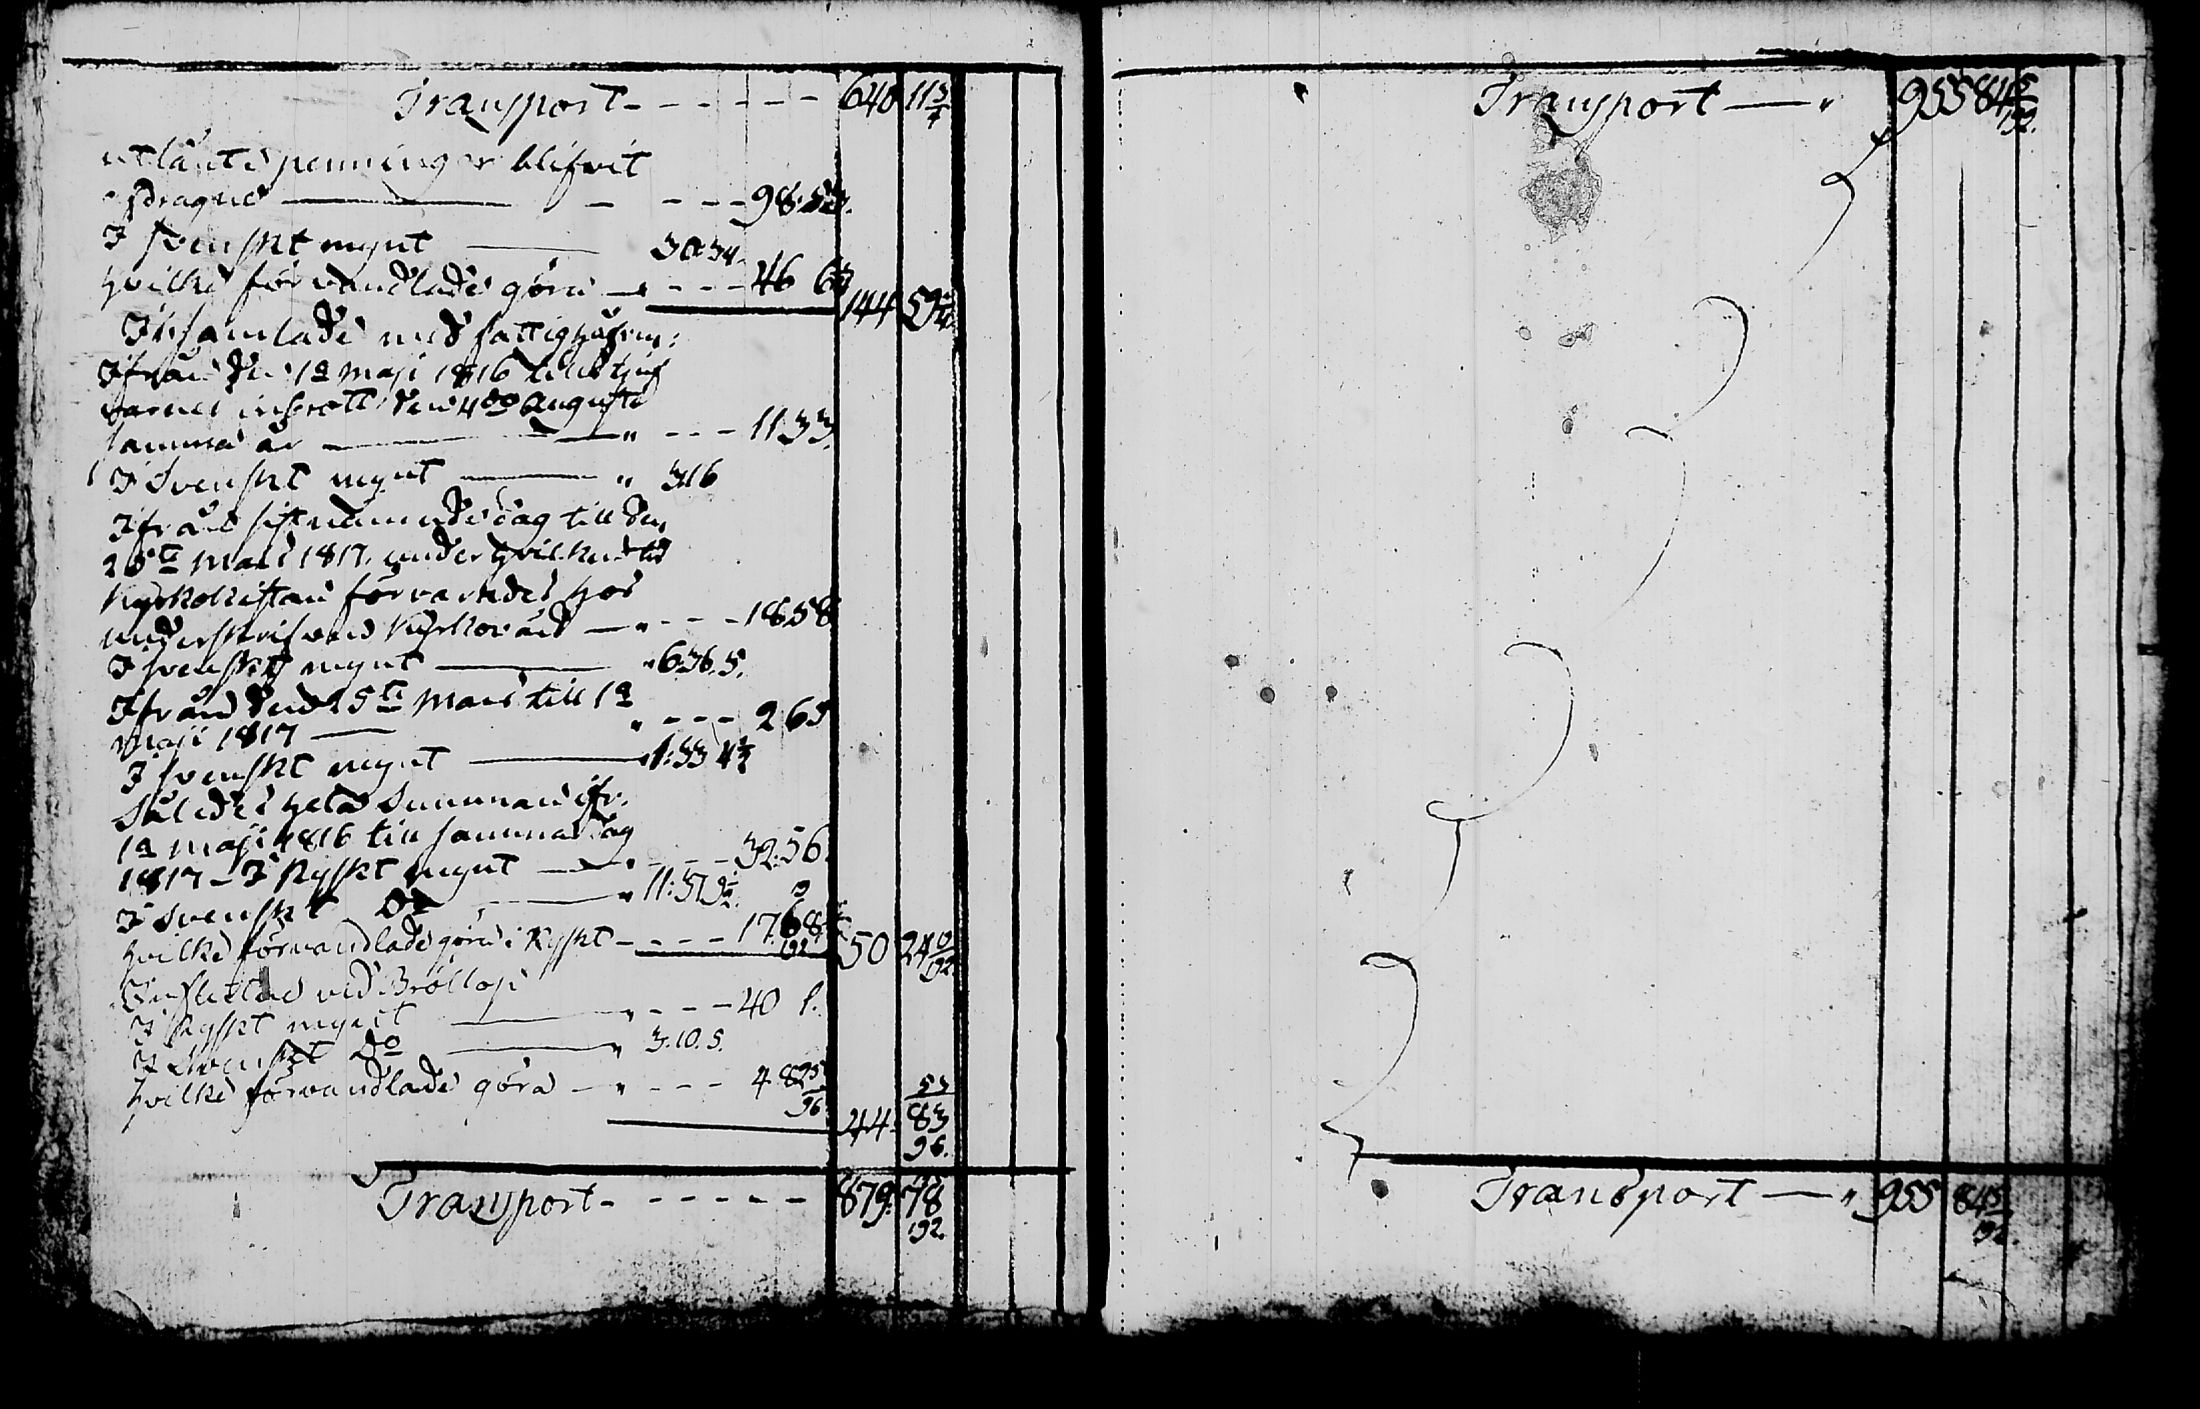 Transport - - - - - - 640 11 3/4
utlånte penningar blifvit
- - - 98:
I Svenskt mynt — 30:34.
hvilke förvandlade göra — - - - 46 6
144 59
Insamlade med fattighåfven:
Ifrån den 1a Maji 1816 till tjuf
den 4de Augusti
samma år — " - - - 11:33.
I Svenskt mynt — " 3:16
Ifrån sistnämnde dag till den
25te Mars 1817. under hvilken tid
Kyrkokistan förvarades hos
underskrifven Kyrkovärd — " - - - 18:58
I Svenskt mynt — " 6:36.5.
Ifrån den 25te Mars till 1a
Maji 1817 — " - - - 2 65
I Svenskt mynt — 1:33 4 1/2
Således hela Summan ifr.
1a Maji 1816 till samma dag
1817 - I Ryskt mynt — " - - - 32:56.
I Svenskt Do — " 11:37
hvilke förvandlade göra i Ryskt - - - - 17.68 50 24
192 192
ved Bröllop
I Ryskt mynt — " - - - 40 1.
I Svenskt Do — " 3.10.5.
hvilke förvandlade göra — " - - - 4 82 44 83
96. 96.
Transport - - - - - - 879. 78
192.
Transport — " 955 84 5
192.
Transport — " 955 84 5
192.